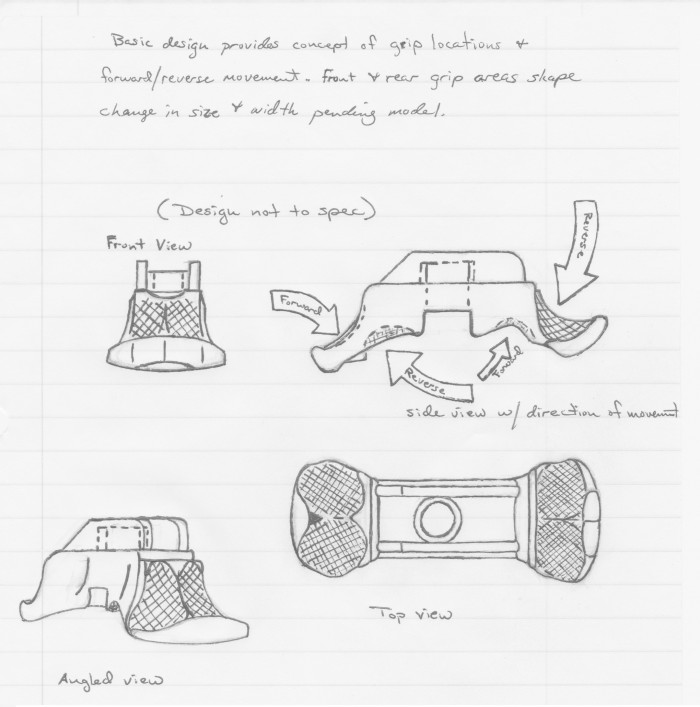 Basic design provides concept of grip locations &
forward/reverse movement. Front & rear grip areas shape
change in size & width pending model.
(Design not to spec)
Front View
Reverse
Forward
Reverse
Forward
side view w/ direction of movement
Top view
Angled view